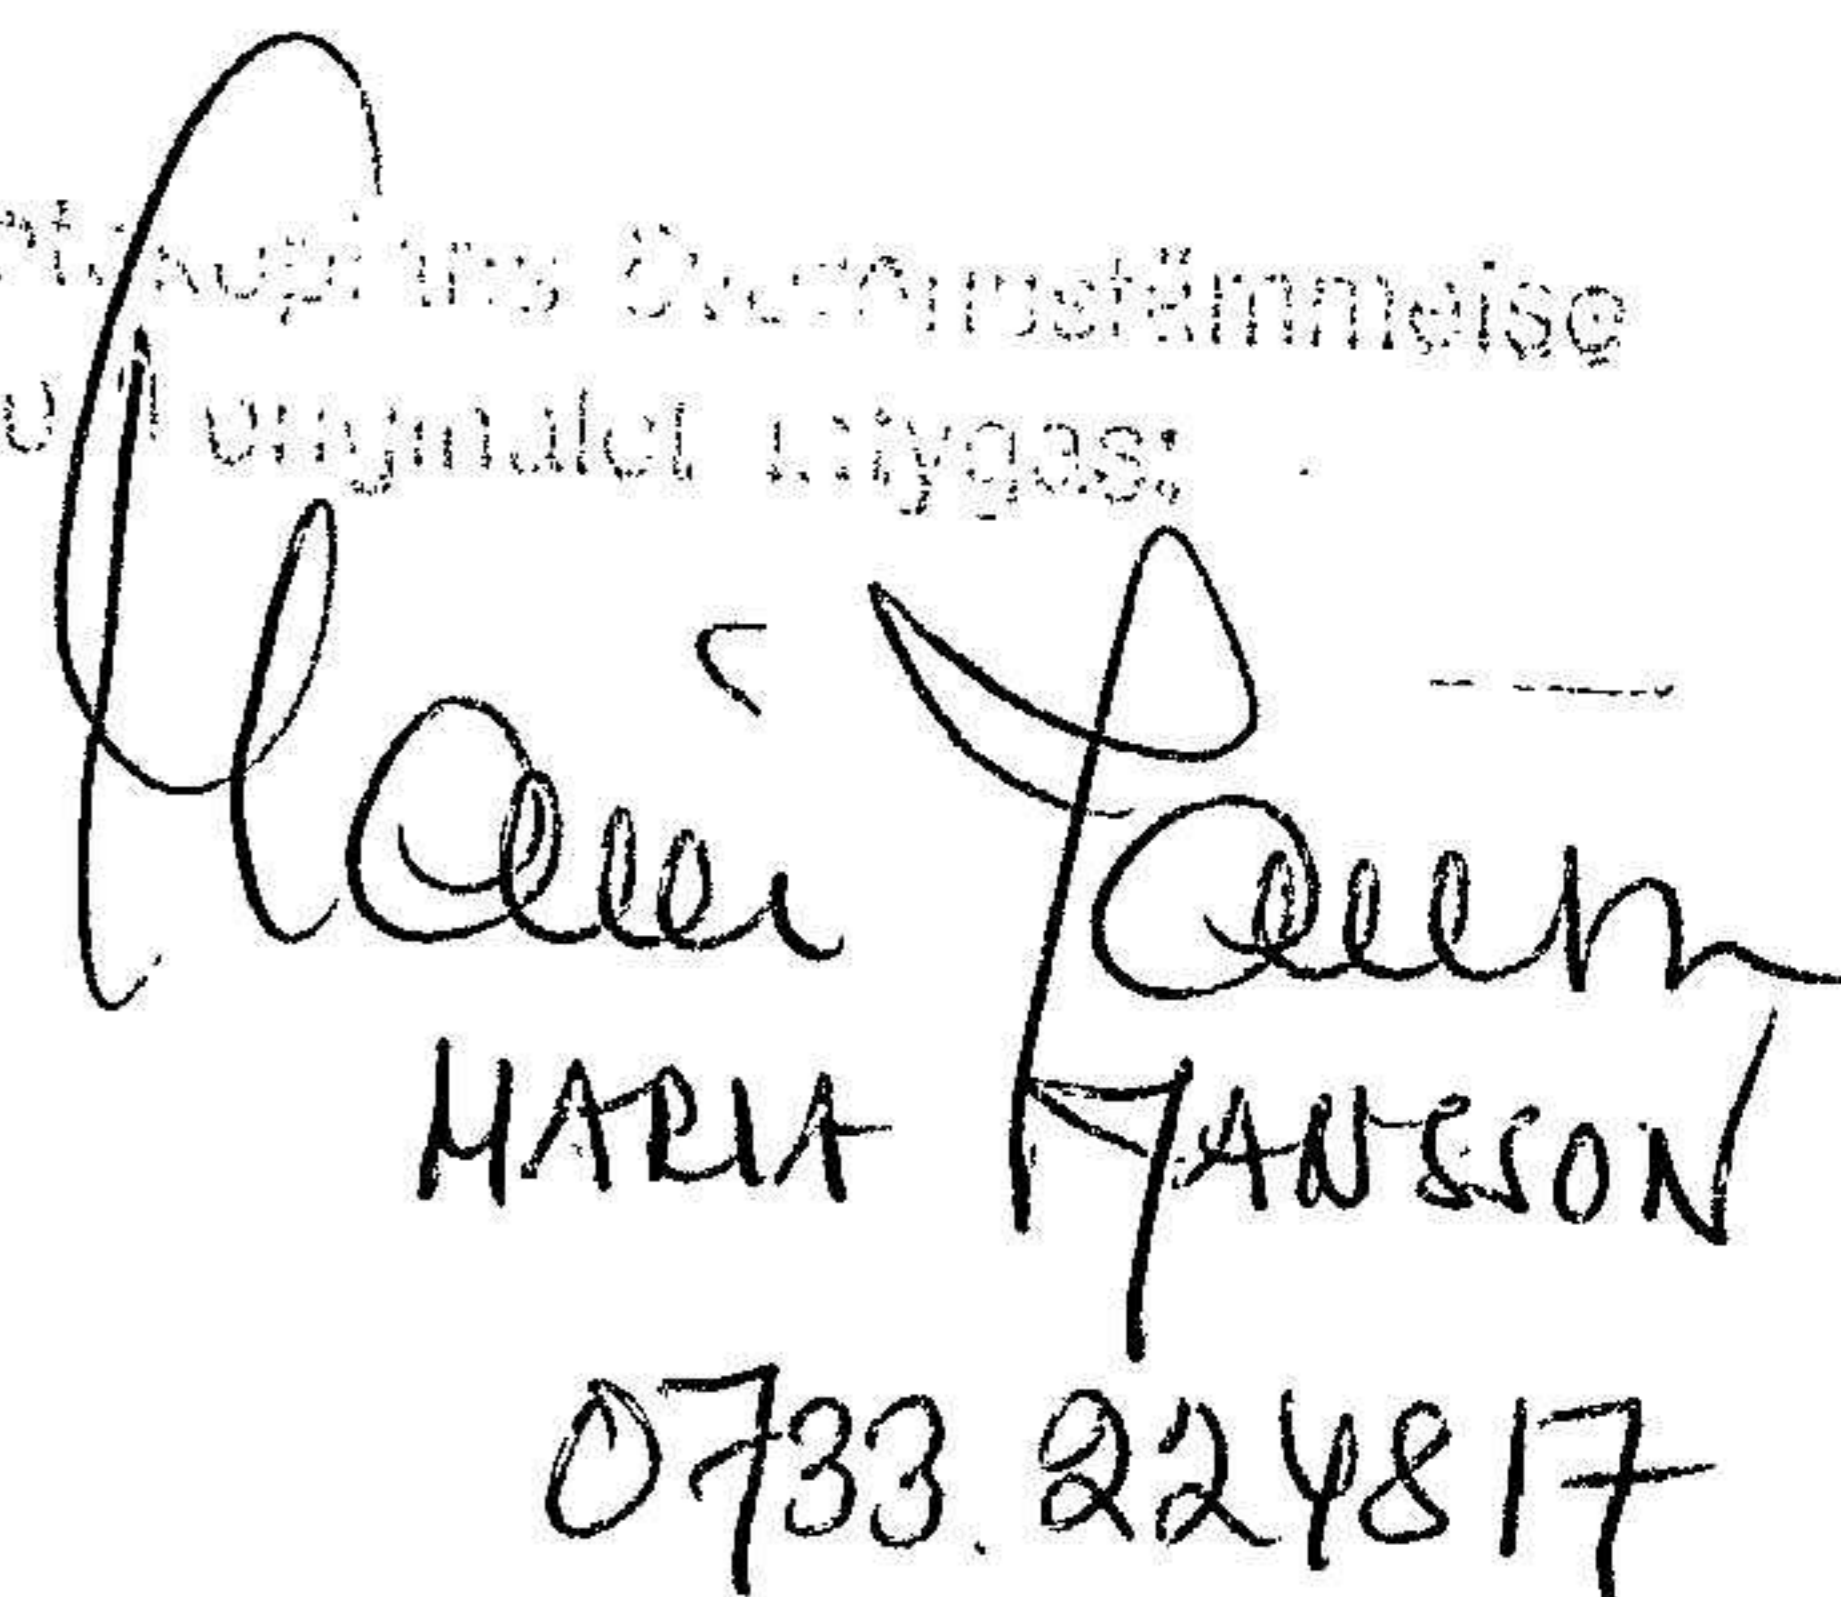 överensstämmelse
originalet intygas:
Maria Hansson
MARIA HANSSON
0733.224817